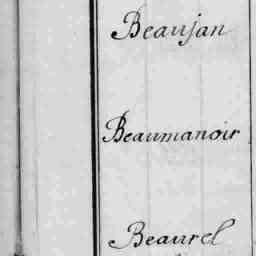 Beaujan
Beaumanoir
Beaurel